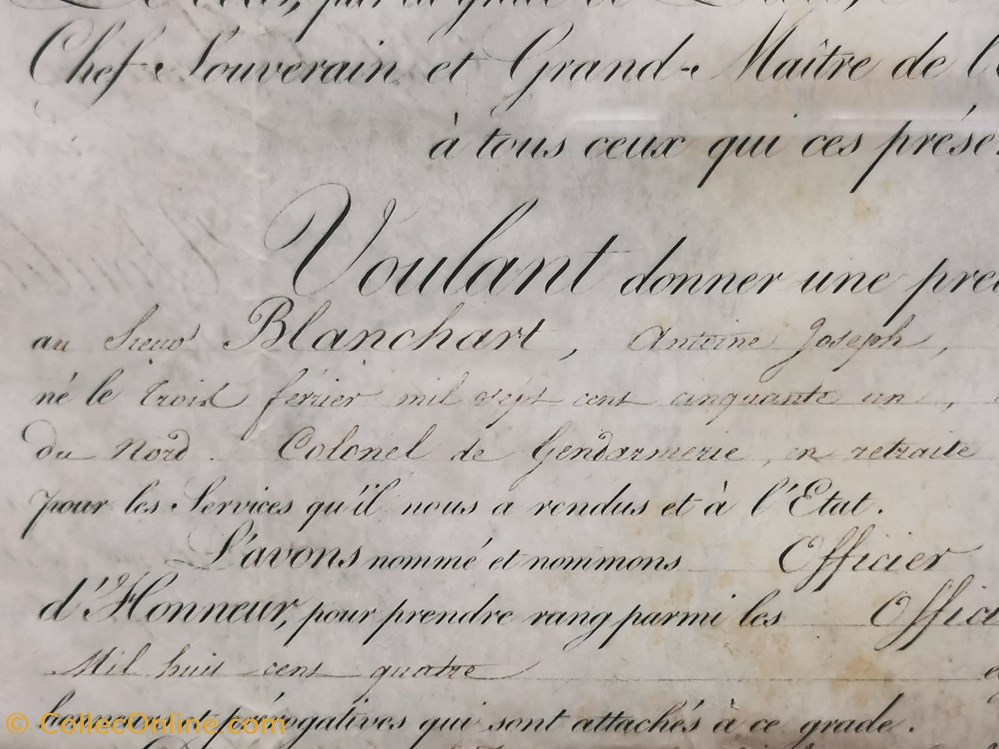 par la grace de
Chef Souverain et Grand-Maître de l'
à tous ceux qui ces prése
Voulant donner une pre
au Sieur Blanchart, Antoine Joseph,
né le trois février mil sept cent cinquante un,
du Nord. Colonel de Gendarmerie, en retraite
pour les Services qu'il nous a rendus et à l'Etat.
L'avons nommé et nommons Officier
d'Honneur, pour prendre rang parmi les Offici
Mil huit cent quatre
honneurs et prérogatives qui sont attachés à ce grade.
© CollecOnline.com